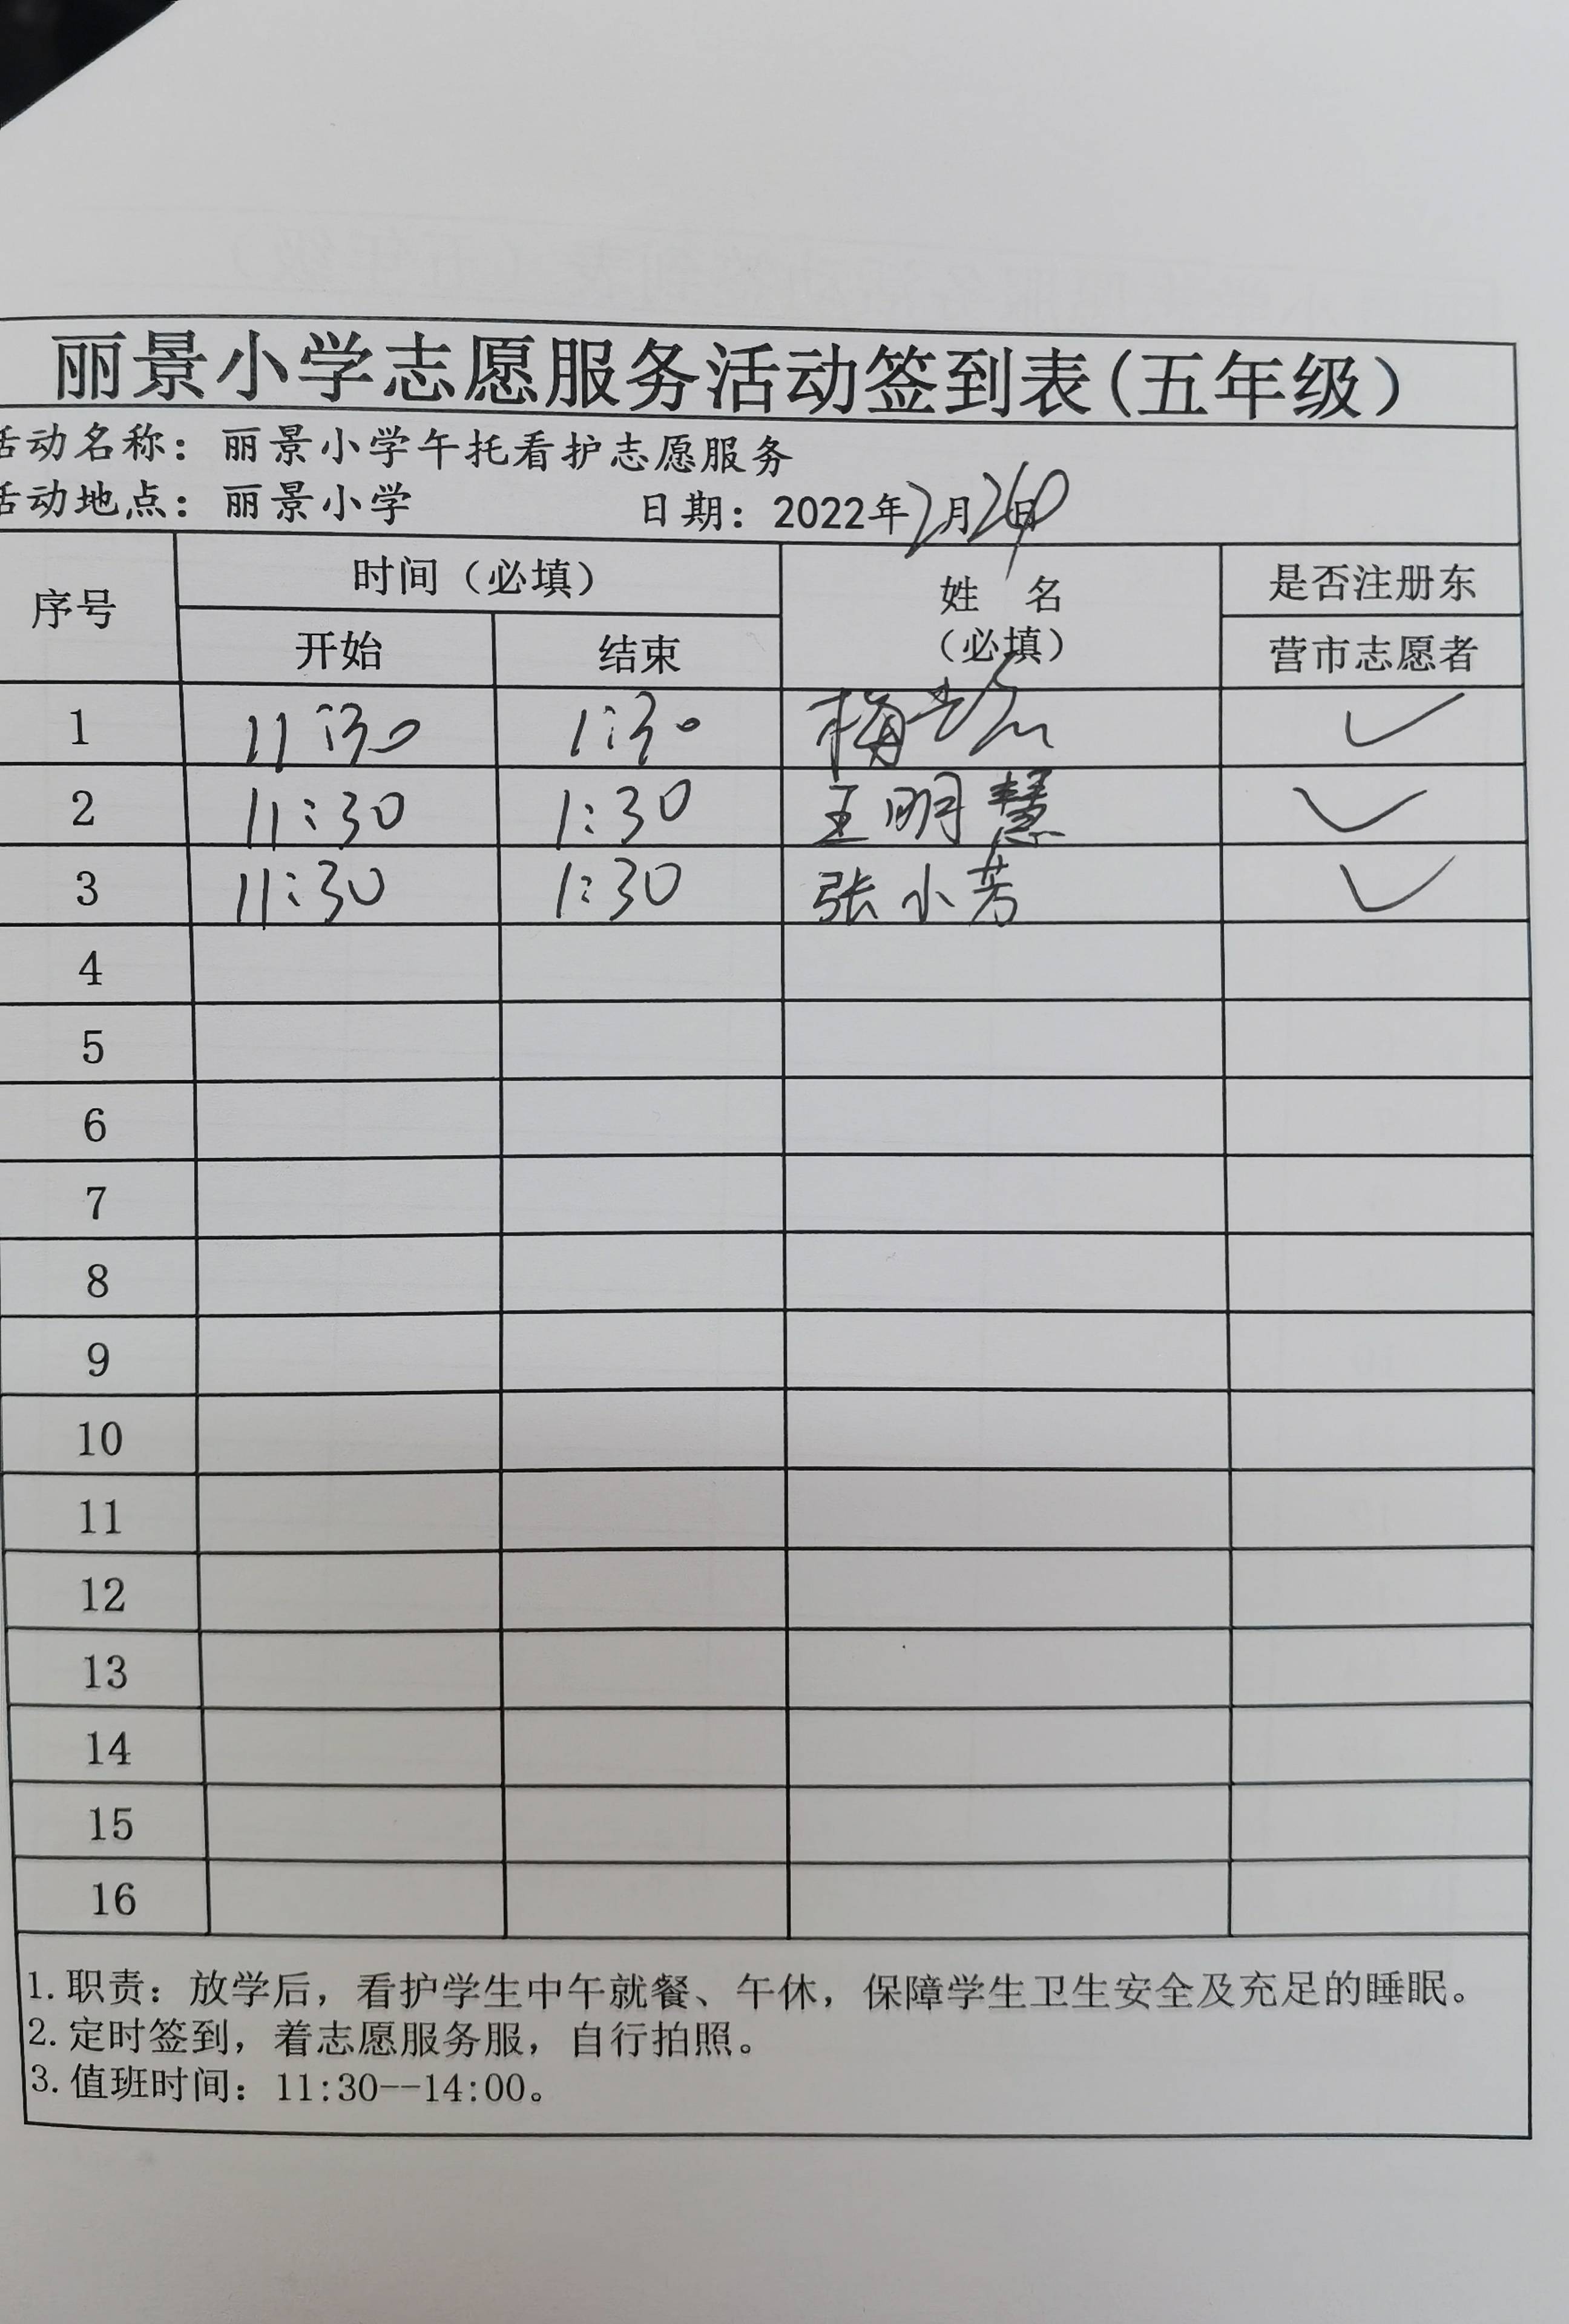 丽景小学志愿服务活动签到表(五年级)
活动名称：丽景小学午托看护志愿服务
活动地点：丽景小学 日期：2022年2月24日
序号 时间（必填） 姓 名（必填） 是否注册东营市志愿者
开始 结束
1 11:30 1:30 梅 ✓
2 11:30 1:30 王明慧 ✓
3 11:30 1:30 张小芳 ✓
4
5
6
7
8
9
10
11
12
13
14
15
16
1.职责：放学后，看护学生中午就餐、午休，保障学生卫生安全及充足的睡眠。
2.定时签到，着志愿服务服，自行拍照。
3.值班时间：11:30--14:00。